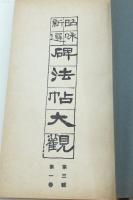 昭咊
新選
碑法帖大觀
第三輯
第一卷